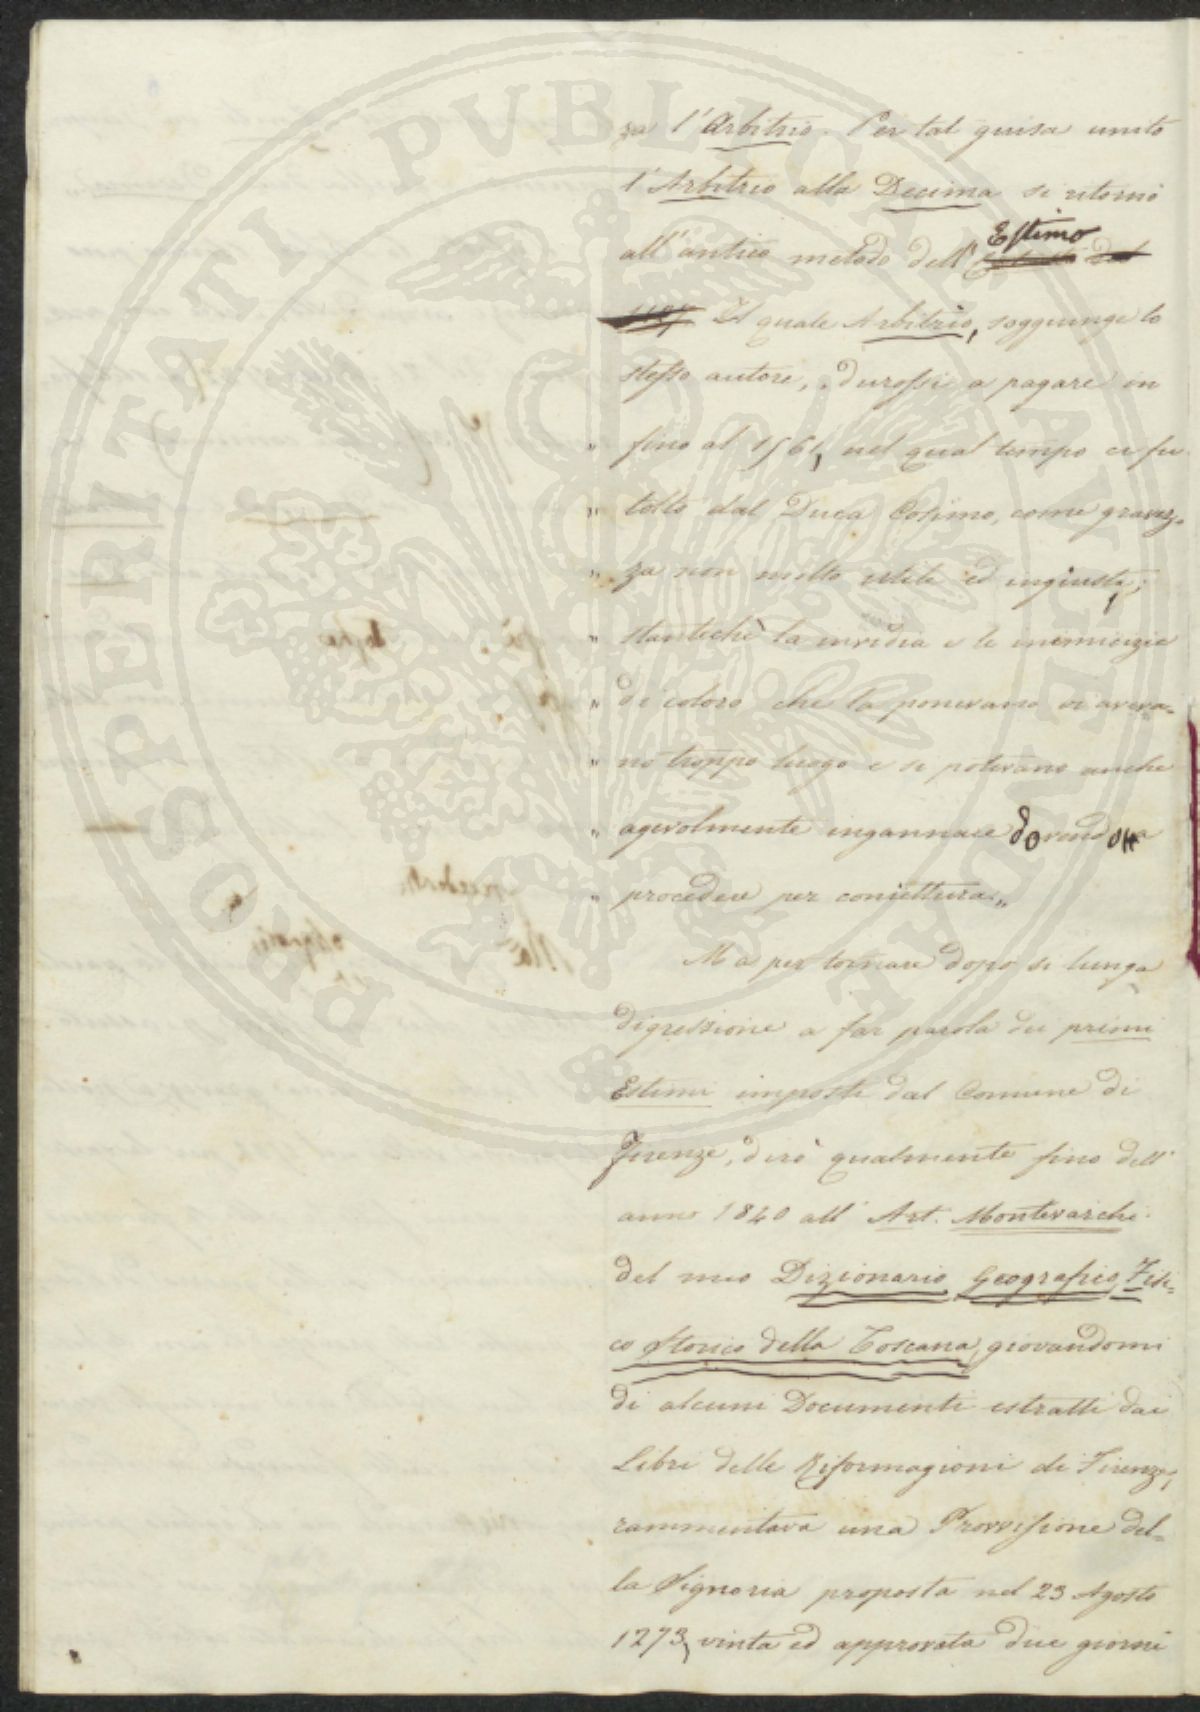 za l'Arbitrio. Per tal guisa unito
l'Arbitrio alla Decima si ritornò
all'antico metodo dell' Estimo
Il quale Arbitrio, soggiunge lo
stesso autore, durossi a pagare in
" fino al 1561, nel qual tempo ei fu
" tolto dal Duca Cosimo, come gravez-
" za non molto utile ed ingiusta;
" stantechè la invidia e le inimicizie
" di coloro che la ponevano vi aveva-
" no troppo luogo e si potevano anche
" agevolmente ingannare dovendosi
" procedere per coniettura „
Ma per tornare dopo sì lunga
digressione a far parola dei primi
Estimi imposti dal Comune di
Firenze, dirò qualmente fino dell'
anno 1840 all' Art. Montevarchi
del mio Dizionario Geografico, Fisi-
co Storico della Toscana, giovandomi
di alcuni Documenti estratti dai
Libri delle Riformagioni di Firenze,
rammentava una Provvisione del-
la Signoria proposta nel 23 Agosto
1273, vinta ed approvata due giorni
PROSPERITATI PUBLICAE AUGENDAE